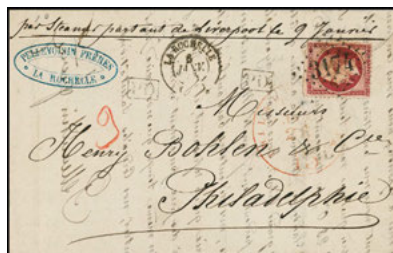 par Steamer partant de Liverpool le 9 Janvier
PELLEVOISIN FRÈRES
LA ROCHELLE
LA ROCHELLE
PD
PD
9
Messieurs
Henry Bohlen & Cie
Philadelphie